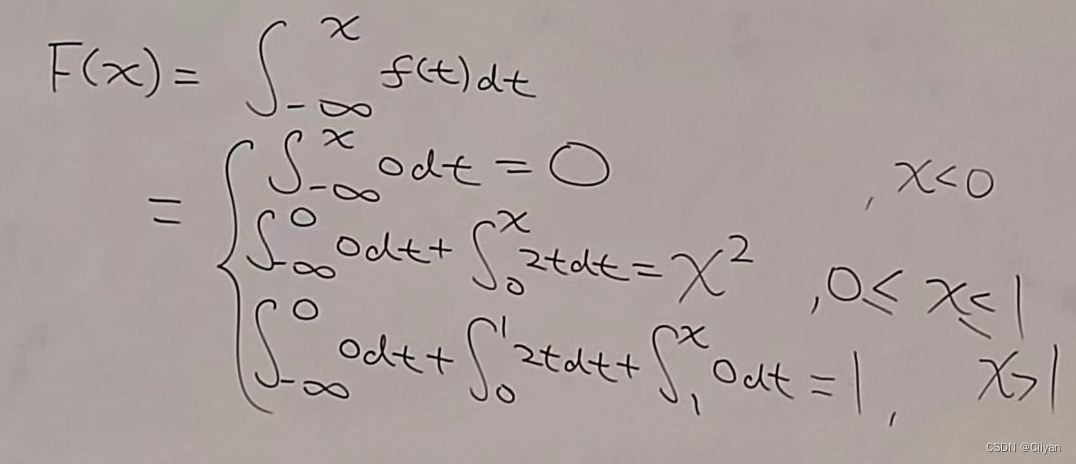 F(x) = ∫_{-∞}^{x} f(t)dt
= { ∫_{-∞}^{x} 0dt = 0 , x<0
∫_{-∞}^{0} 0dt + ∫_{0}^{x} 2tdt = x² , 0≤ x ≤ 1
∫_{-∞}^{0} 0dt + ∫_{0}^{1} 2tdt + ∫_{1}^{x} 0dt = 1 , x>1
CSDN @Cilyan